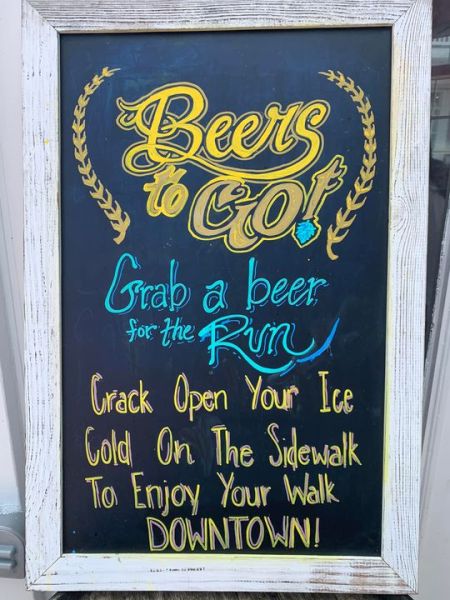 Beers
to GO!
Grab a beer
for the Run
Crack Open Your Ice
Cold On The Sidewalk
To Enjoy Your Walk
DOWNTOWN!